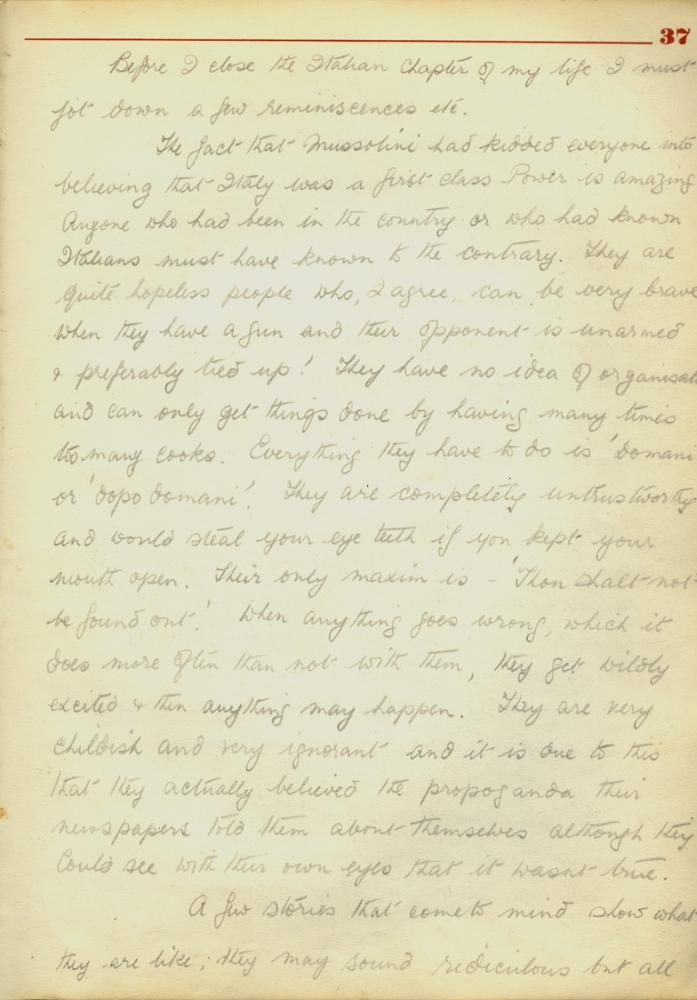 37
Before I close the Italian Chapter of my life I must
jot down a few reminiscences etc.
The fact that Mussolini had kidded everyone into
believing that Italy was a first class Power is amazing
Anyone who had been in the country or who had known
Italians must have known to the contrary. They are
quite hopeless people who, I agree, can be very brave
when they have a gun and their opponent is unarmed
& preferably tied up! They have no idea of organisat
and can only get things done by having many times
too many cooks. Everything they have to do is 'domani
or 'dopo domani'. They are completely untrustworthy
and would steal your eye teeth if you kept your
mouth open. Their only maxim is - 'Thou shalt not
be found out!' When anything goes wrong, which it
does more often than not with them, they get wildly
excited & then anything may happen. They are very
childish and very ignorant and it is due to this
that they actually believed the propoganda their
newspapers told them about themselves although they
could see with their own eyes that it wasnt true.
A few stories that come to mind show what
they are like; they may sound ridiculous but all